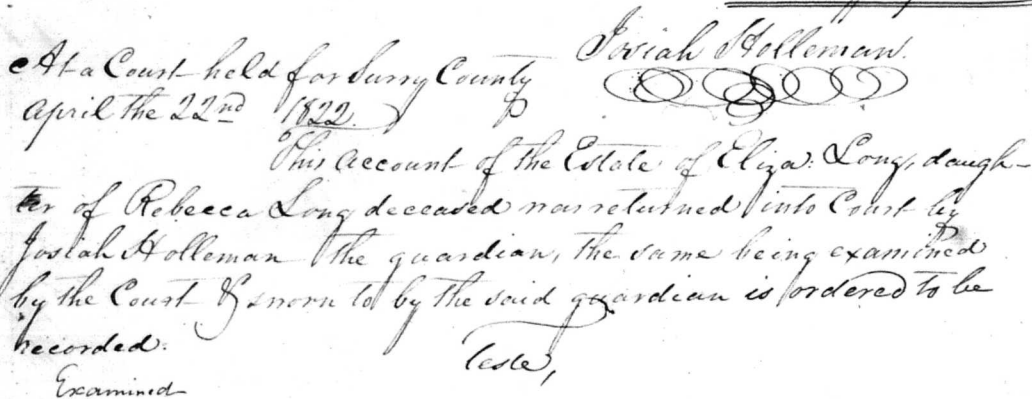 Josiah Holleman.
At a Court held for Surry County
April the 22nd 1822.
This account of the Estate of Eliza. Long, daugh-
ter of Rebecca Long deceased was returned into Court by
Josiah Holleman the guardian, the same being examined
by the Court & sworn to by the said guardian is ordered to be
recorded.
Teste,
Examined